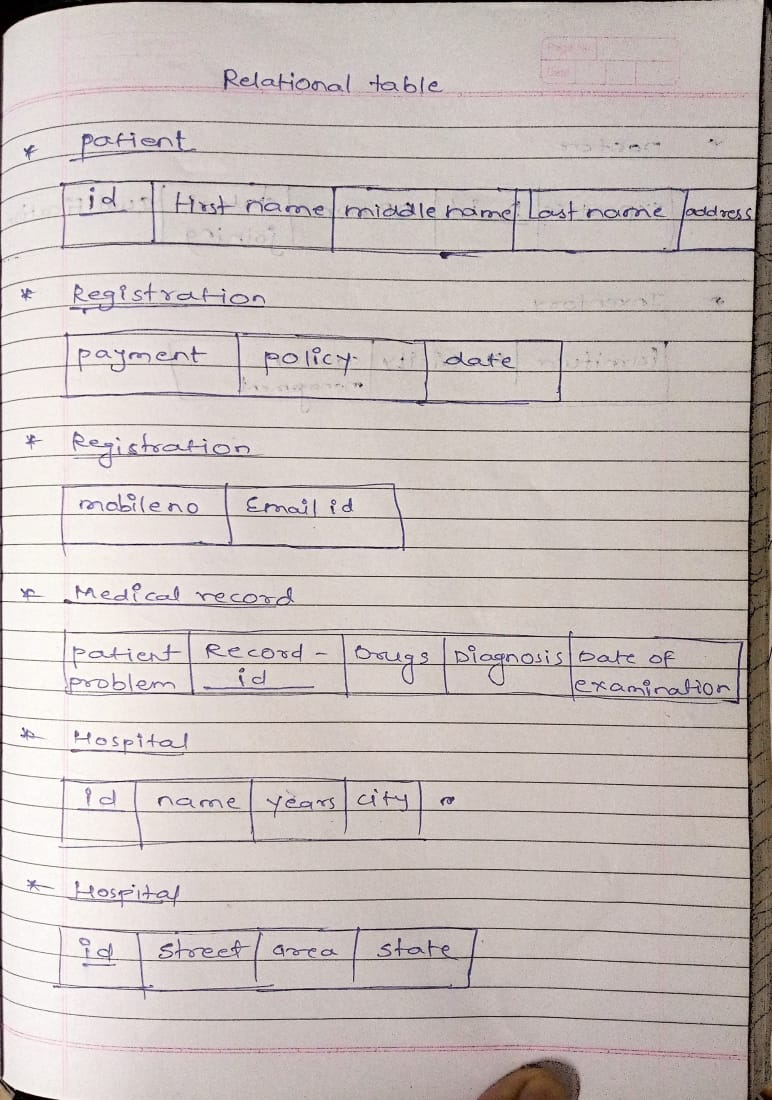 Page No.
Date
Relational table
* patient
id First name middle name Last name address
* Registration
payment policy date
* Registration
mobile no Email id
* Medical record
patient Record - Drugs Diagnosis Date of
problem id examination
* Hospital
id name years city
* Hospital
id street area state